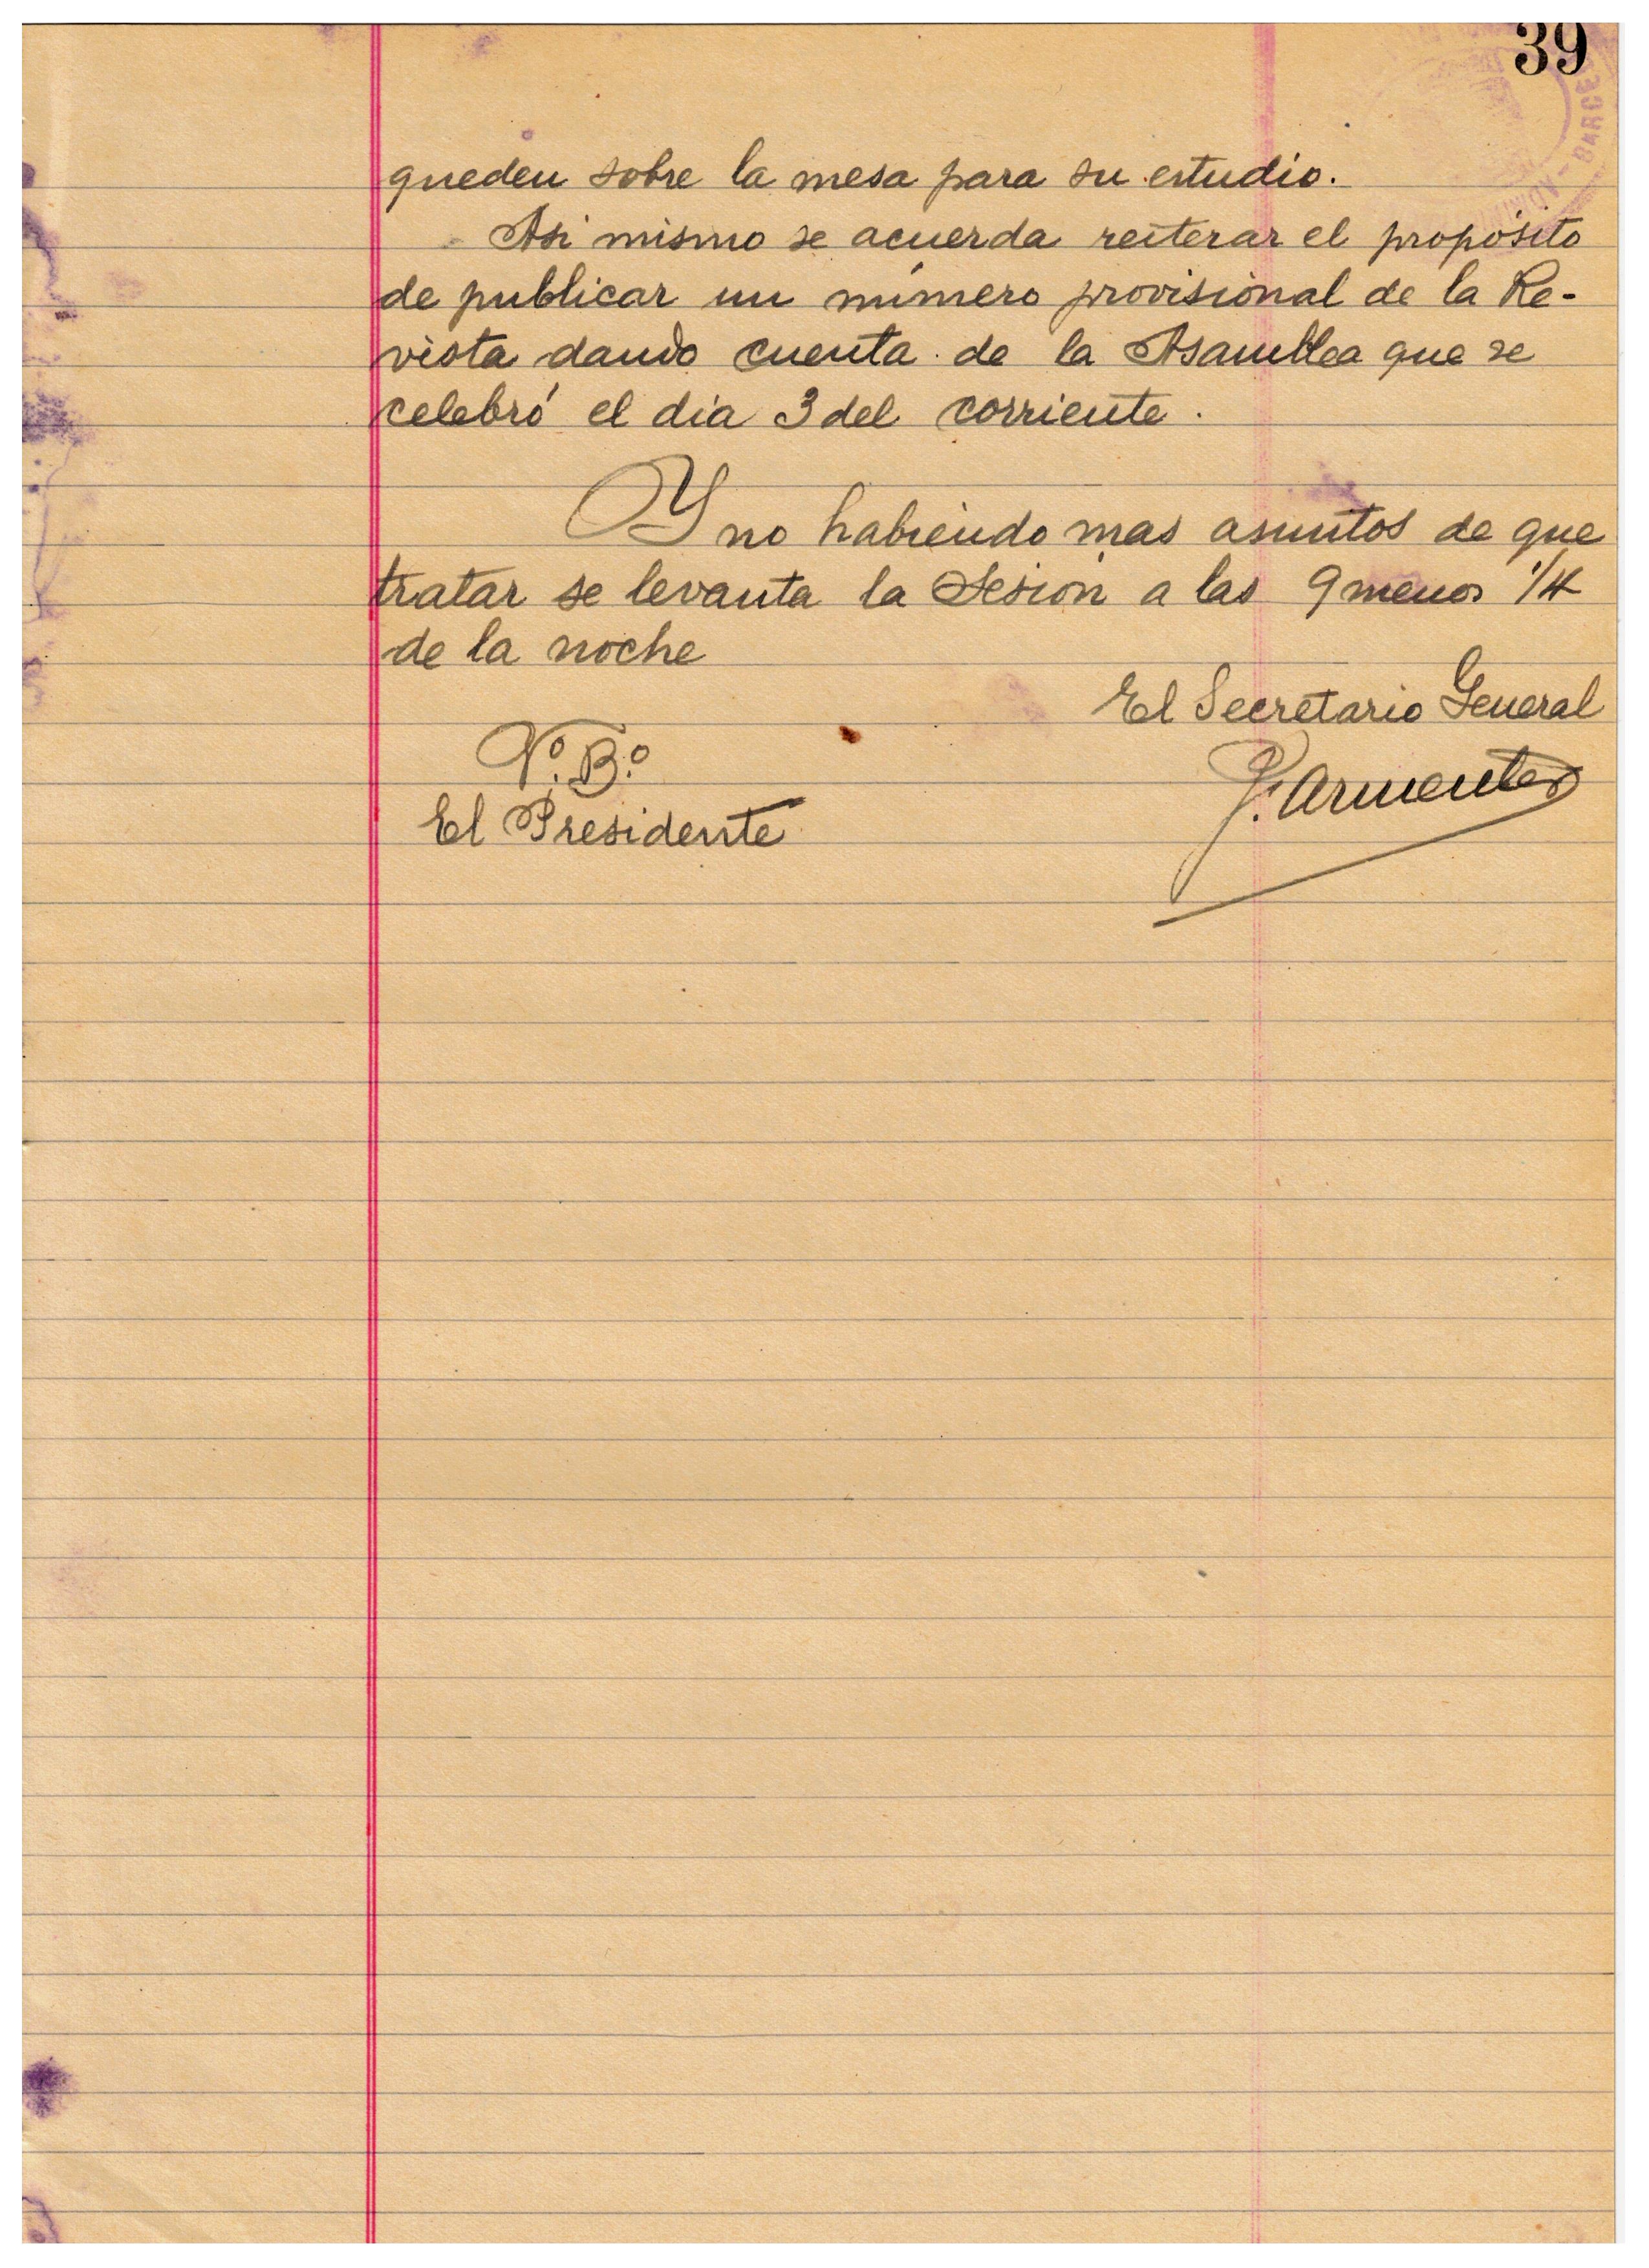 39
queden sobre la mesa para su estudio.
Asi mismo se acuerda reiterar el propósito
de publicar un número provisional de la Re-
vista dando cuenta de la Asamblea que se
celebró el dia 3 del corriente.
Y no habiendo mas asuntos de que
tratar se levanta la Sesión a las 9 menos 1/4
de la noche
El Secretario General
Vº. Bº.
P. Armenter
El Presidente